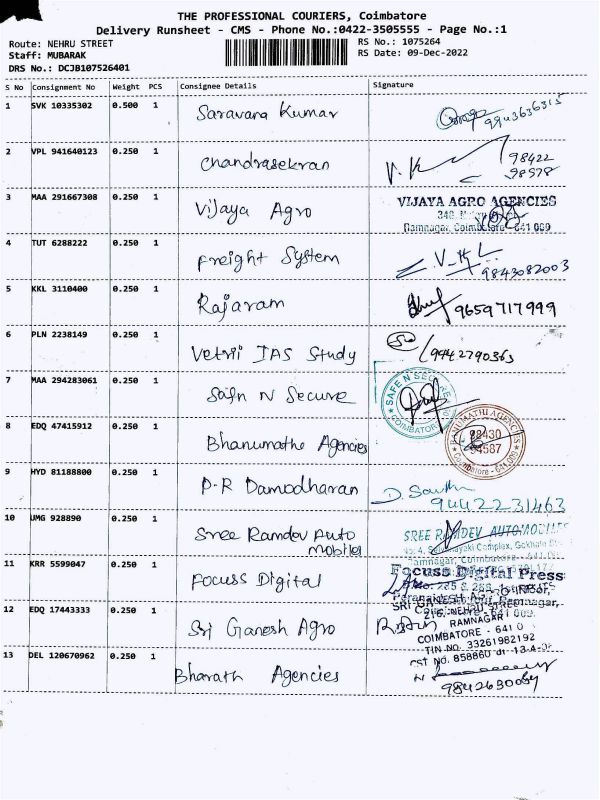 THE PROFESSIONAL COURIERS, Coimbatore
Delivery Runsheet - CMS - Phone No.:0422-3505555 - Page No.:1
Route: NEHRU STREET
RS No.: 1075264
Staff: MUBARAK
RS Date: 09-Dec-2022
DRS No.: DCJB107526401
S No Consignment No Weight PCS Consignee Details Signature
1 SVK 10335302 0.500 1 Saravana Kumar 9943636315
2 VPL 941640123 0.250 1 Chandrasekran V.K 98422
98578
3 MAA 291667308 0.250 1 Vijaya Agro VIJAYA AGRO AGENCIES
Ramnagar, Coimbatore - 641 009
4 TUT 6288222 0.250 1 Freight System 9843082003
5 KKL 3110400 0.250 1 Rajaram 9659717999
6 PLN 2238149 0.250 1 Vetrii IAS Study 9442790363
7 MAA 294283061 0.250 1 Safn N Secure SAFE N SECURE
COIMBATORE
8 EDQ 47415912 0.250 1 Bhanumathe Agencies BANUMATHI AGENCIES
98430
94587
Coimbatore - 641 009
9 HYD 81188800 0.250 1 P.R Damodharan D. 9442231463
10 UMG 928890 0.250 1 Sree Ramdev Auto mobiles SREE RAMDEV AUTOMOBILES
Complex, Gokhale
Ramnagar, Coimbatore
11 KRR 5599047 0.250 1 Focuss Digital Focuss Digital Press
Ramnagar,
12 EDQ 17443333 0.250 1 Sri Ganesh Agro SRI GANESH AGRO
216, NEHRU STREET
RAMNAGAR
COIMBATORE - 641 0
TIN NO. 33261982192
CST NO. 858860 dt 13-4-
13 DEL 120670962 0.250 1 Bharath Agencies